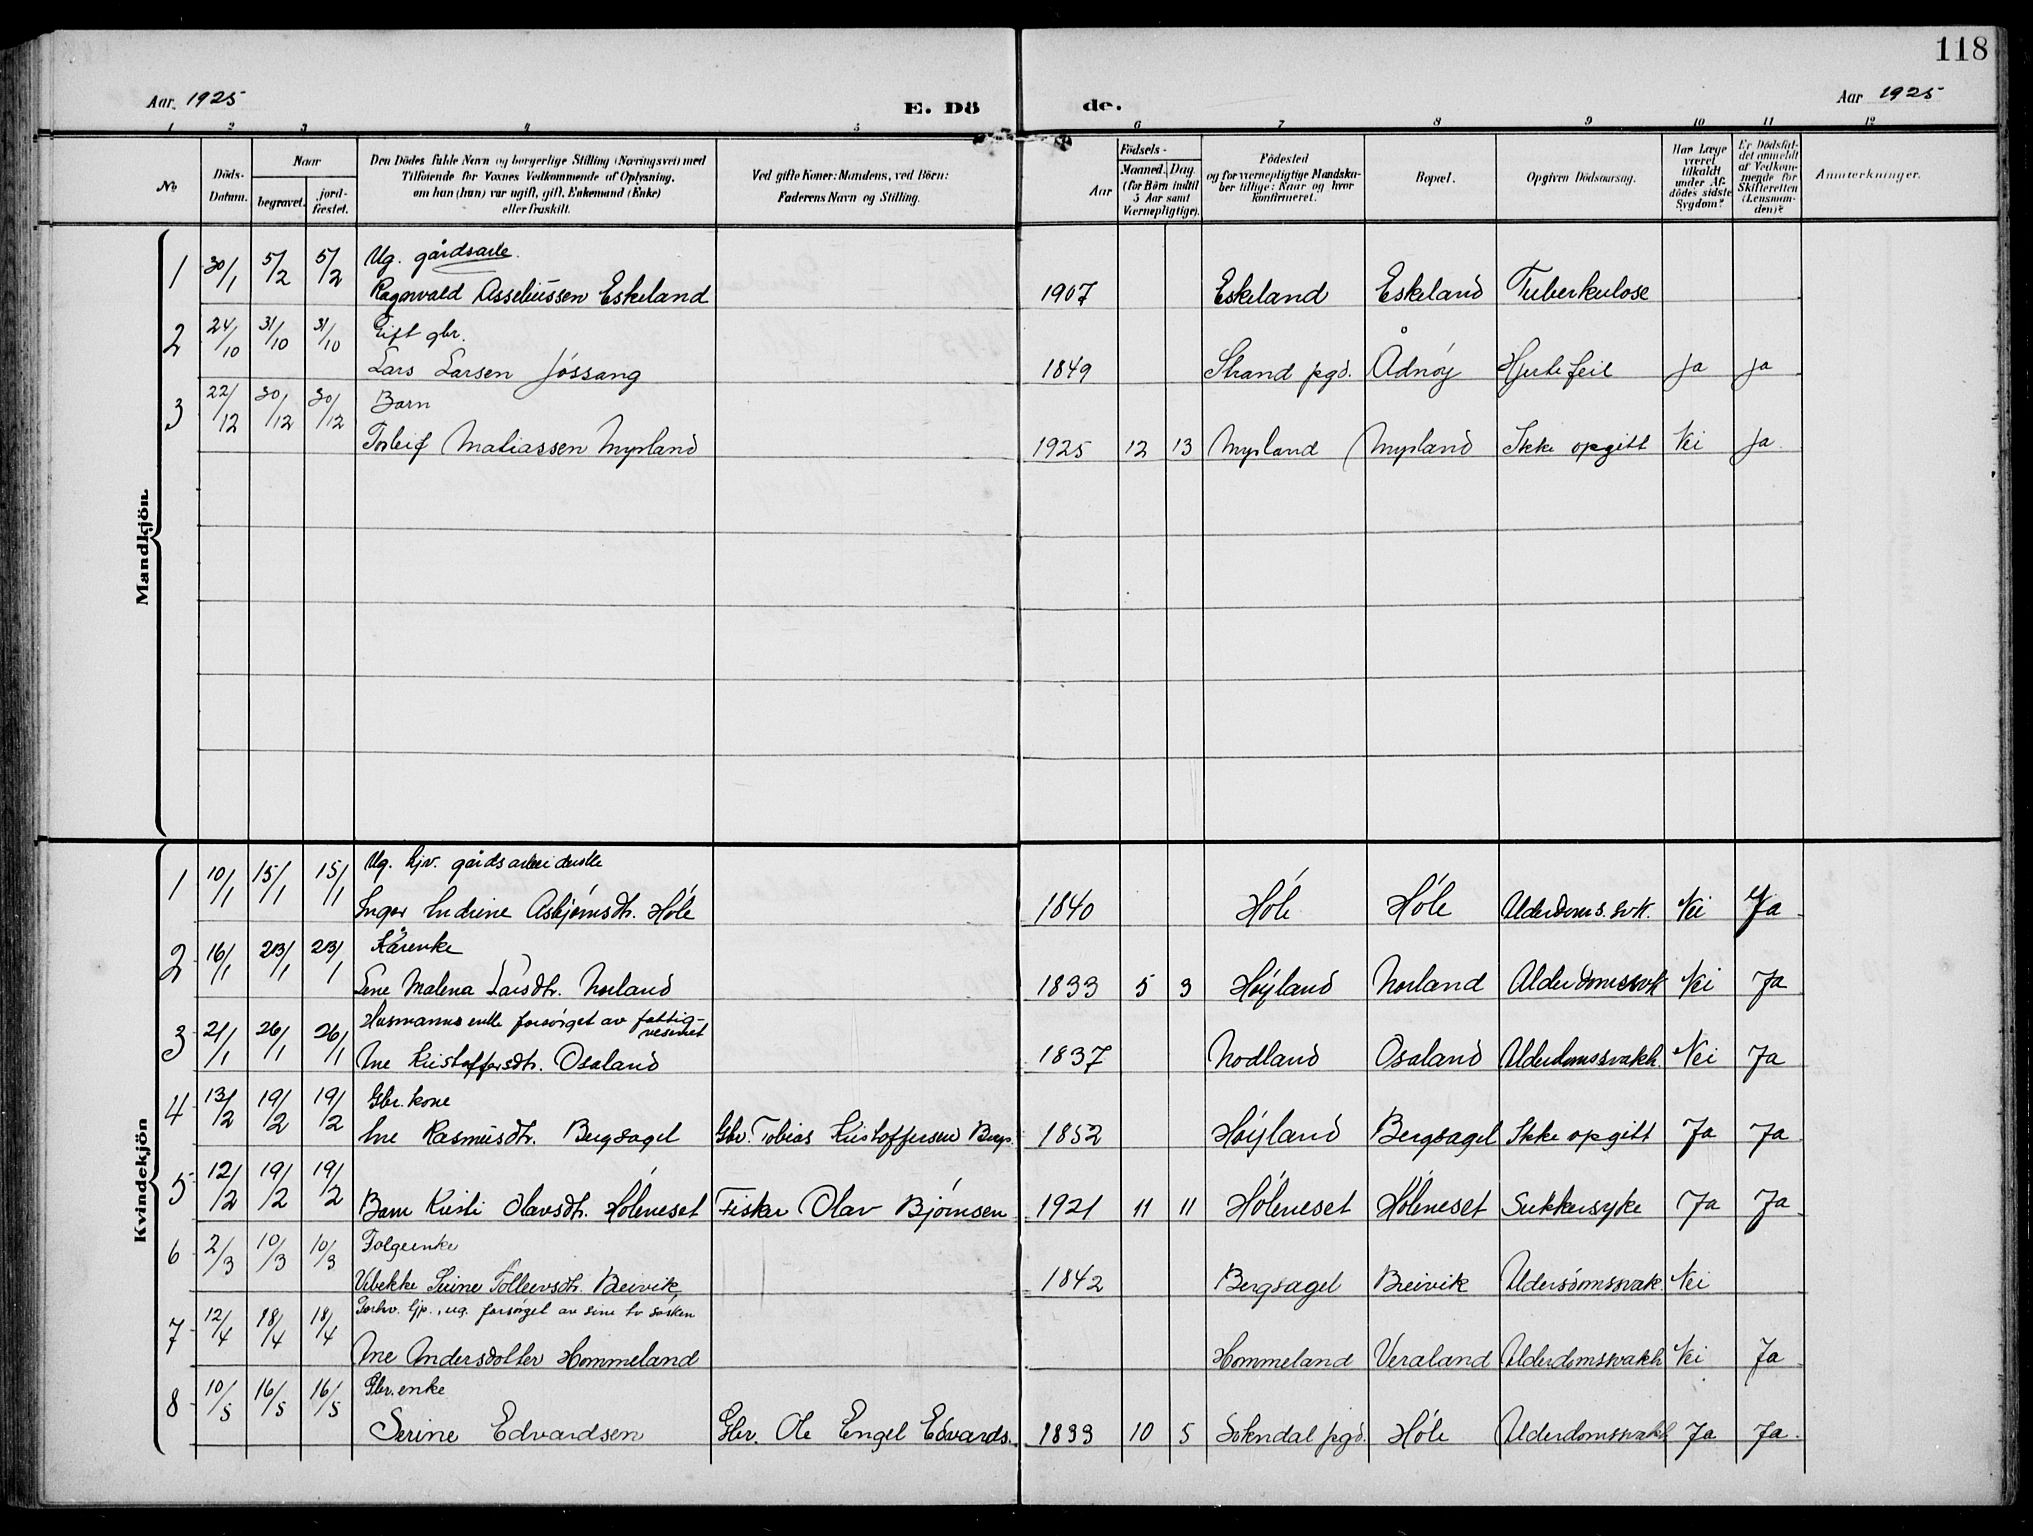 118
Aar 1925 E. Dö de. Aar 1925
1 2 3 4 5 6 7 8 9 10 11 12
No Döds-Datum. Naar begravet. jord-fæstet. Den Dödes fulde Navn og borgerlige Stilling (Næringsvei) med Tilføiende for Voxnes Vedkommende af Oplysning, om han (hun) var ugift, gift, Enkemand (Enke) eller fraskilt. Ved gifte Koner: Mandens, ved Börn: Faderens Navn og Stilling. Födsels- Aar Maaned. Dag. (for Börn indtil 5 Aar samt Værnepligtige). Födested og for værnepligtige Mandska-ber tillige: Naar og hvor konfirmeret. Bopæl. Opgiven Dödsaarsag. Har Læge været tilkaldt under Af-dödes sidste Sygdom? Er Dödsfal-det anmeldt af Vedkom-mende for Skifteretten (Lensman-den)? Anmerkninger.
Mandkjön
1 30/1 5/2 5/2 Ug. gårdsarb.
Ragnvald Asseliussen Eskeland 1907 Eskeland Eskeland Tuberkulose
2 24/10 31/10 31/10 Gift gbr.
Lars Larsen Jóssang 1849 Strand pgd. Ådnóy Hjertefeil Ja Ja
3 22/12 30/12 30/12 Barn
Torleif Matiassen Myrland 1925 12 13 Myrland Myrland Ikke opgitt Nei Ja
Kvindekjön
1 10/1 15/1 15/1 Ug. hjv. gårdsarbeiderske
Inger Indrine Asbjórnsdtr. Hóle 1840 Hóle Hóle Alderdoms.svk. Nei Ja
2 16/1 23/1 23/1 Kårenke
Lene Malena Larsdtr. Norland 1833 5 3 Hóyland Norland Alderdomssvk Nei Ja
3 21/1 26/1 26/1 Husmanns enke forsórget av fattig-vesenet
Ane Kristoffersdtr. Osaland 1837 Nodland Osaland Alderdomssvakh. Nei Ja
4 13/2 19/2 19/2 Gbr. kone
Ane Rasmusdtr. Bergsagel Gbr. Tobias Kristoffersen Bergs. 1852 Hóyland Bergsagel Ikke opgitt Ja Ja
5 12/2 19/2 19/2
Barn Kirsti Olavsdtr. Hóleneset Fisker Olav Bjórnsen 1921 11 11 Hóleneset Hóleneset Sukkersyke Ja Ja
6 2/3 10/3 10/3 Folgeenke
Vibekke Serine Tolleivsdtr. Breivik 1842 Bergsagel Breivik Alderdómssvak. Nei
7 12/4 18/4 18/4 ug. forsórget av sine to sósken
Ane Andersdotter Hommeland Hommeland Veraland Alderdomssvakh Nei Ja
8 10/5 16/5 16/5 Gbr. enke
Serine Edvardsen Gbr. Ole Engel Edvards. 1833 10 5 Sokndal pgd. Hóle Alderdomssvakh Ja Ja.